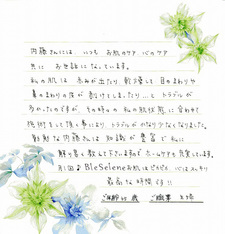 内藤さんには、いつもお肌のケア 心のケア
共に お世話になっています。
私の肌は 赤みが出たり、乾燥して 目のまわりや
鼻のまわりの皮が剥けてしまったり…と トラブルが
多かったのですが、その時々の 私の肌状態に合わせて
施術をして頂く事により、トラブルが かなり少なくなりました。
勉強な内藤さんは 知識が豊富で 私に
解り易く教えて下さいますので ホームケアも充実しています。
月1回♪ BleSelene お肌はピカピカ、心はスッキリ
最高な時間です!!
ご年齢 41歳 ご職業 主婦